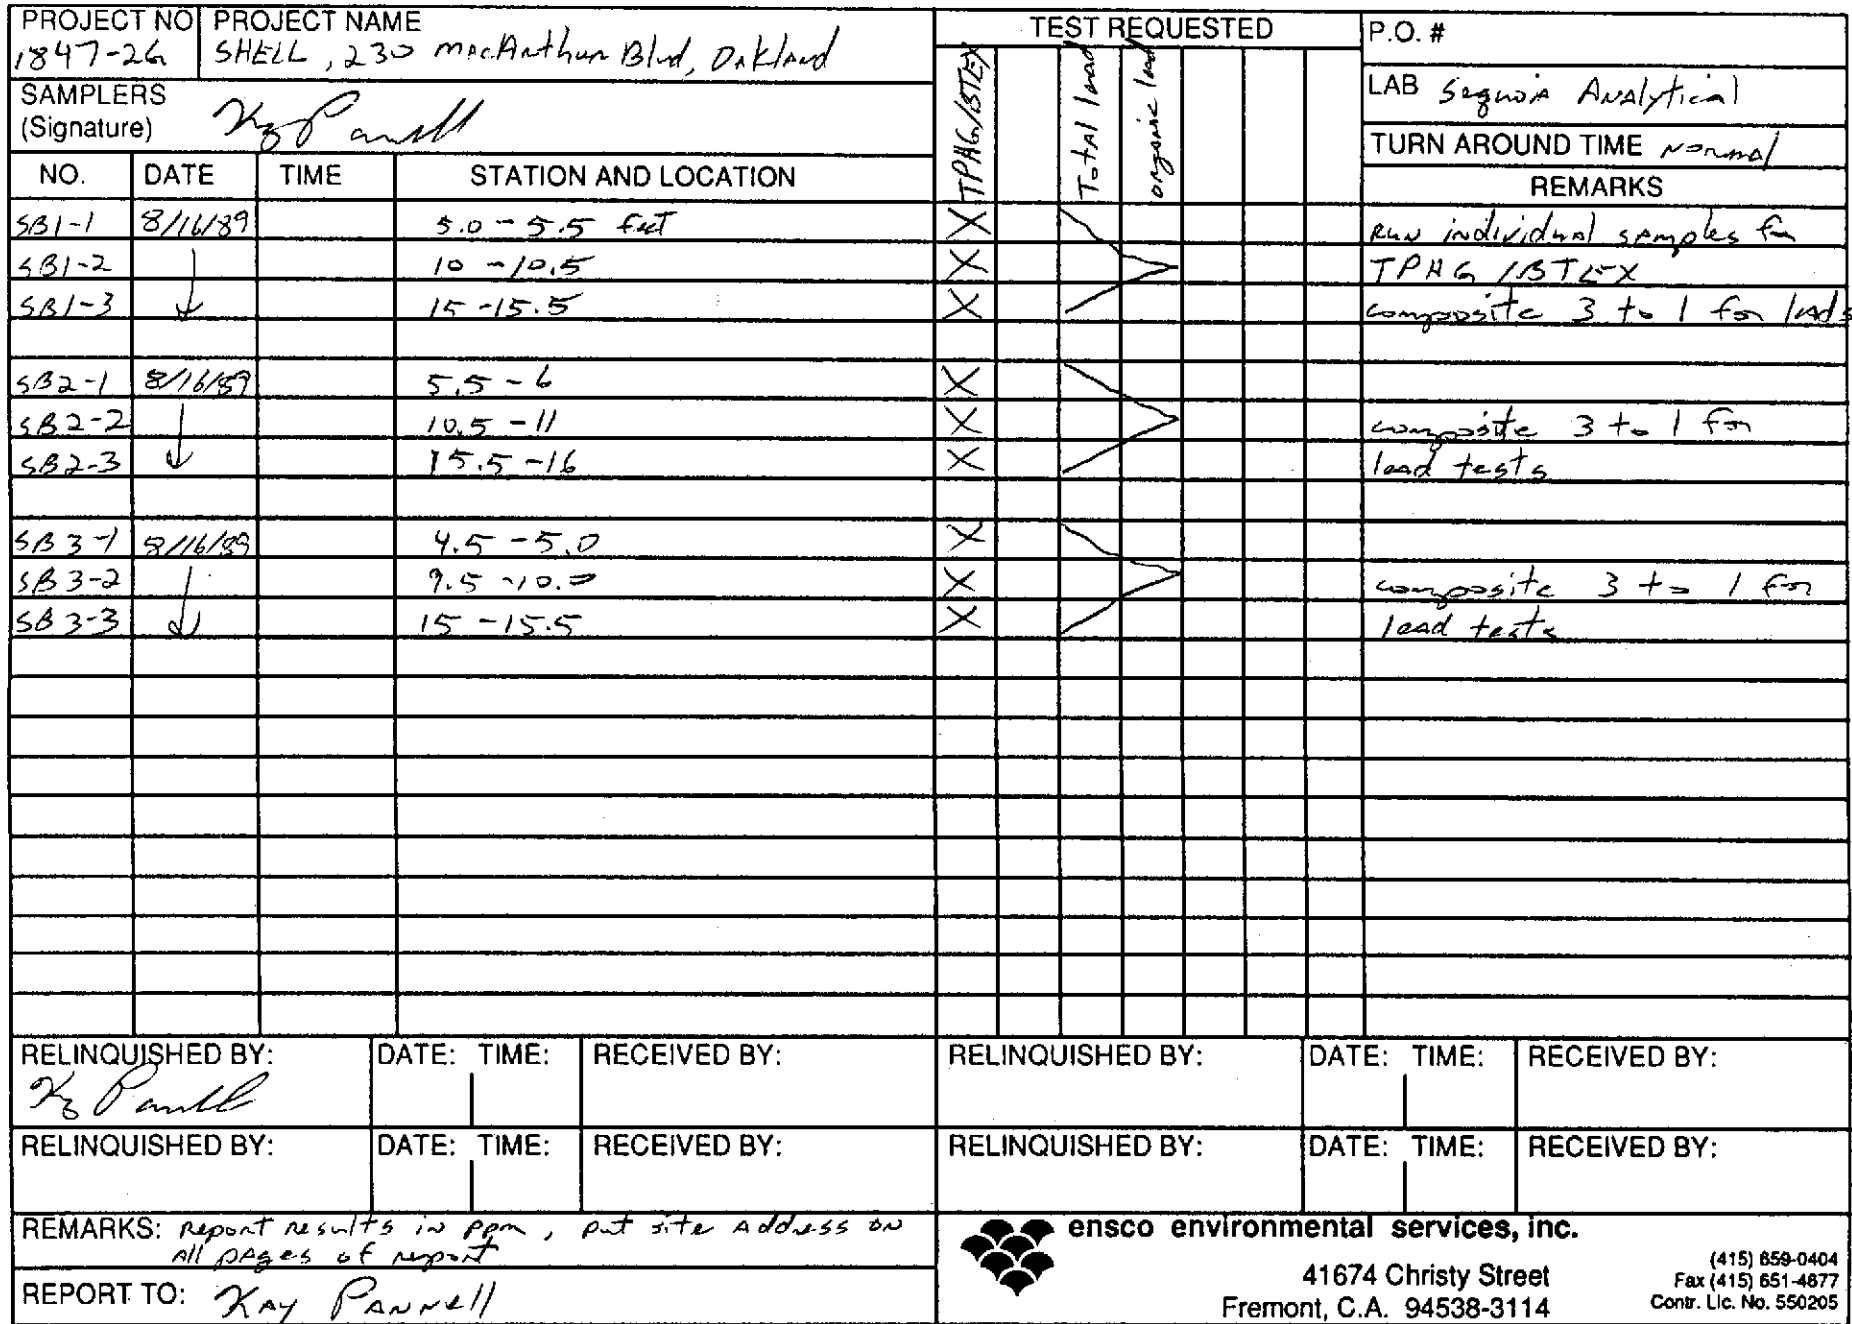 PROJECT NO PROJECT NAME
1847-26 SHELL, 230 MacArthur Blvd, Oakland
SAMPLERS
(Signature) Kay Pannell
TEST REQUESTED
TPHG/BTEX
Total lead
organic lead
P.O. #
LAB Sequoia Analytical
TURN AROUND TIME Normal
NO. DATE TIME STATION AND LOCATION REMARKS
SB1-1 8/16/89 5.0 - 5.5 feet X Run individual samples for
SB1-2 10 - 10.5 X TPHG /BTEX
SB1-3 15 - 15.5 X composite 3 to 1 for leads
SB2-1 8/16/89 5.5 - 6 X
SB2-2 10.5 - 11 X composite 3 to 1 for
SB2-3 15.5 - 16 X lead tests
SB3-1 8/16/89 4.5 - 5.0 X
SB3-2 9.5 - 10.0 X composite 3 to 1 for
SB3-3 15 - 15.5 X lead tests
RELINQUISHED BY: DATE: TIME: RECEIVED BY: RELINQUISHED BY: DATE: TIME: RECEIVED BY:
Kay Pannell
RELINQUISHED BY: DATE: TIME: RECEIVED BY: RELINQUISHED BY: DATE: TIME: RECEIVED BY:
REMARKS: Report results in ppm, put site address on
All pages of report
REPORT TO: Kay Pannell
ensco environmental services, inc.
41674 Christy Street
Fremont, C.A. 94538-3114
(415) 659-0404
Fax (415) 651-4677
Contr. Lic. No. 550205